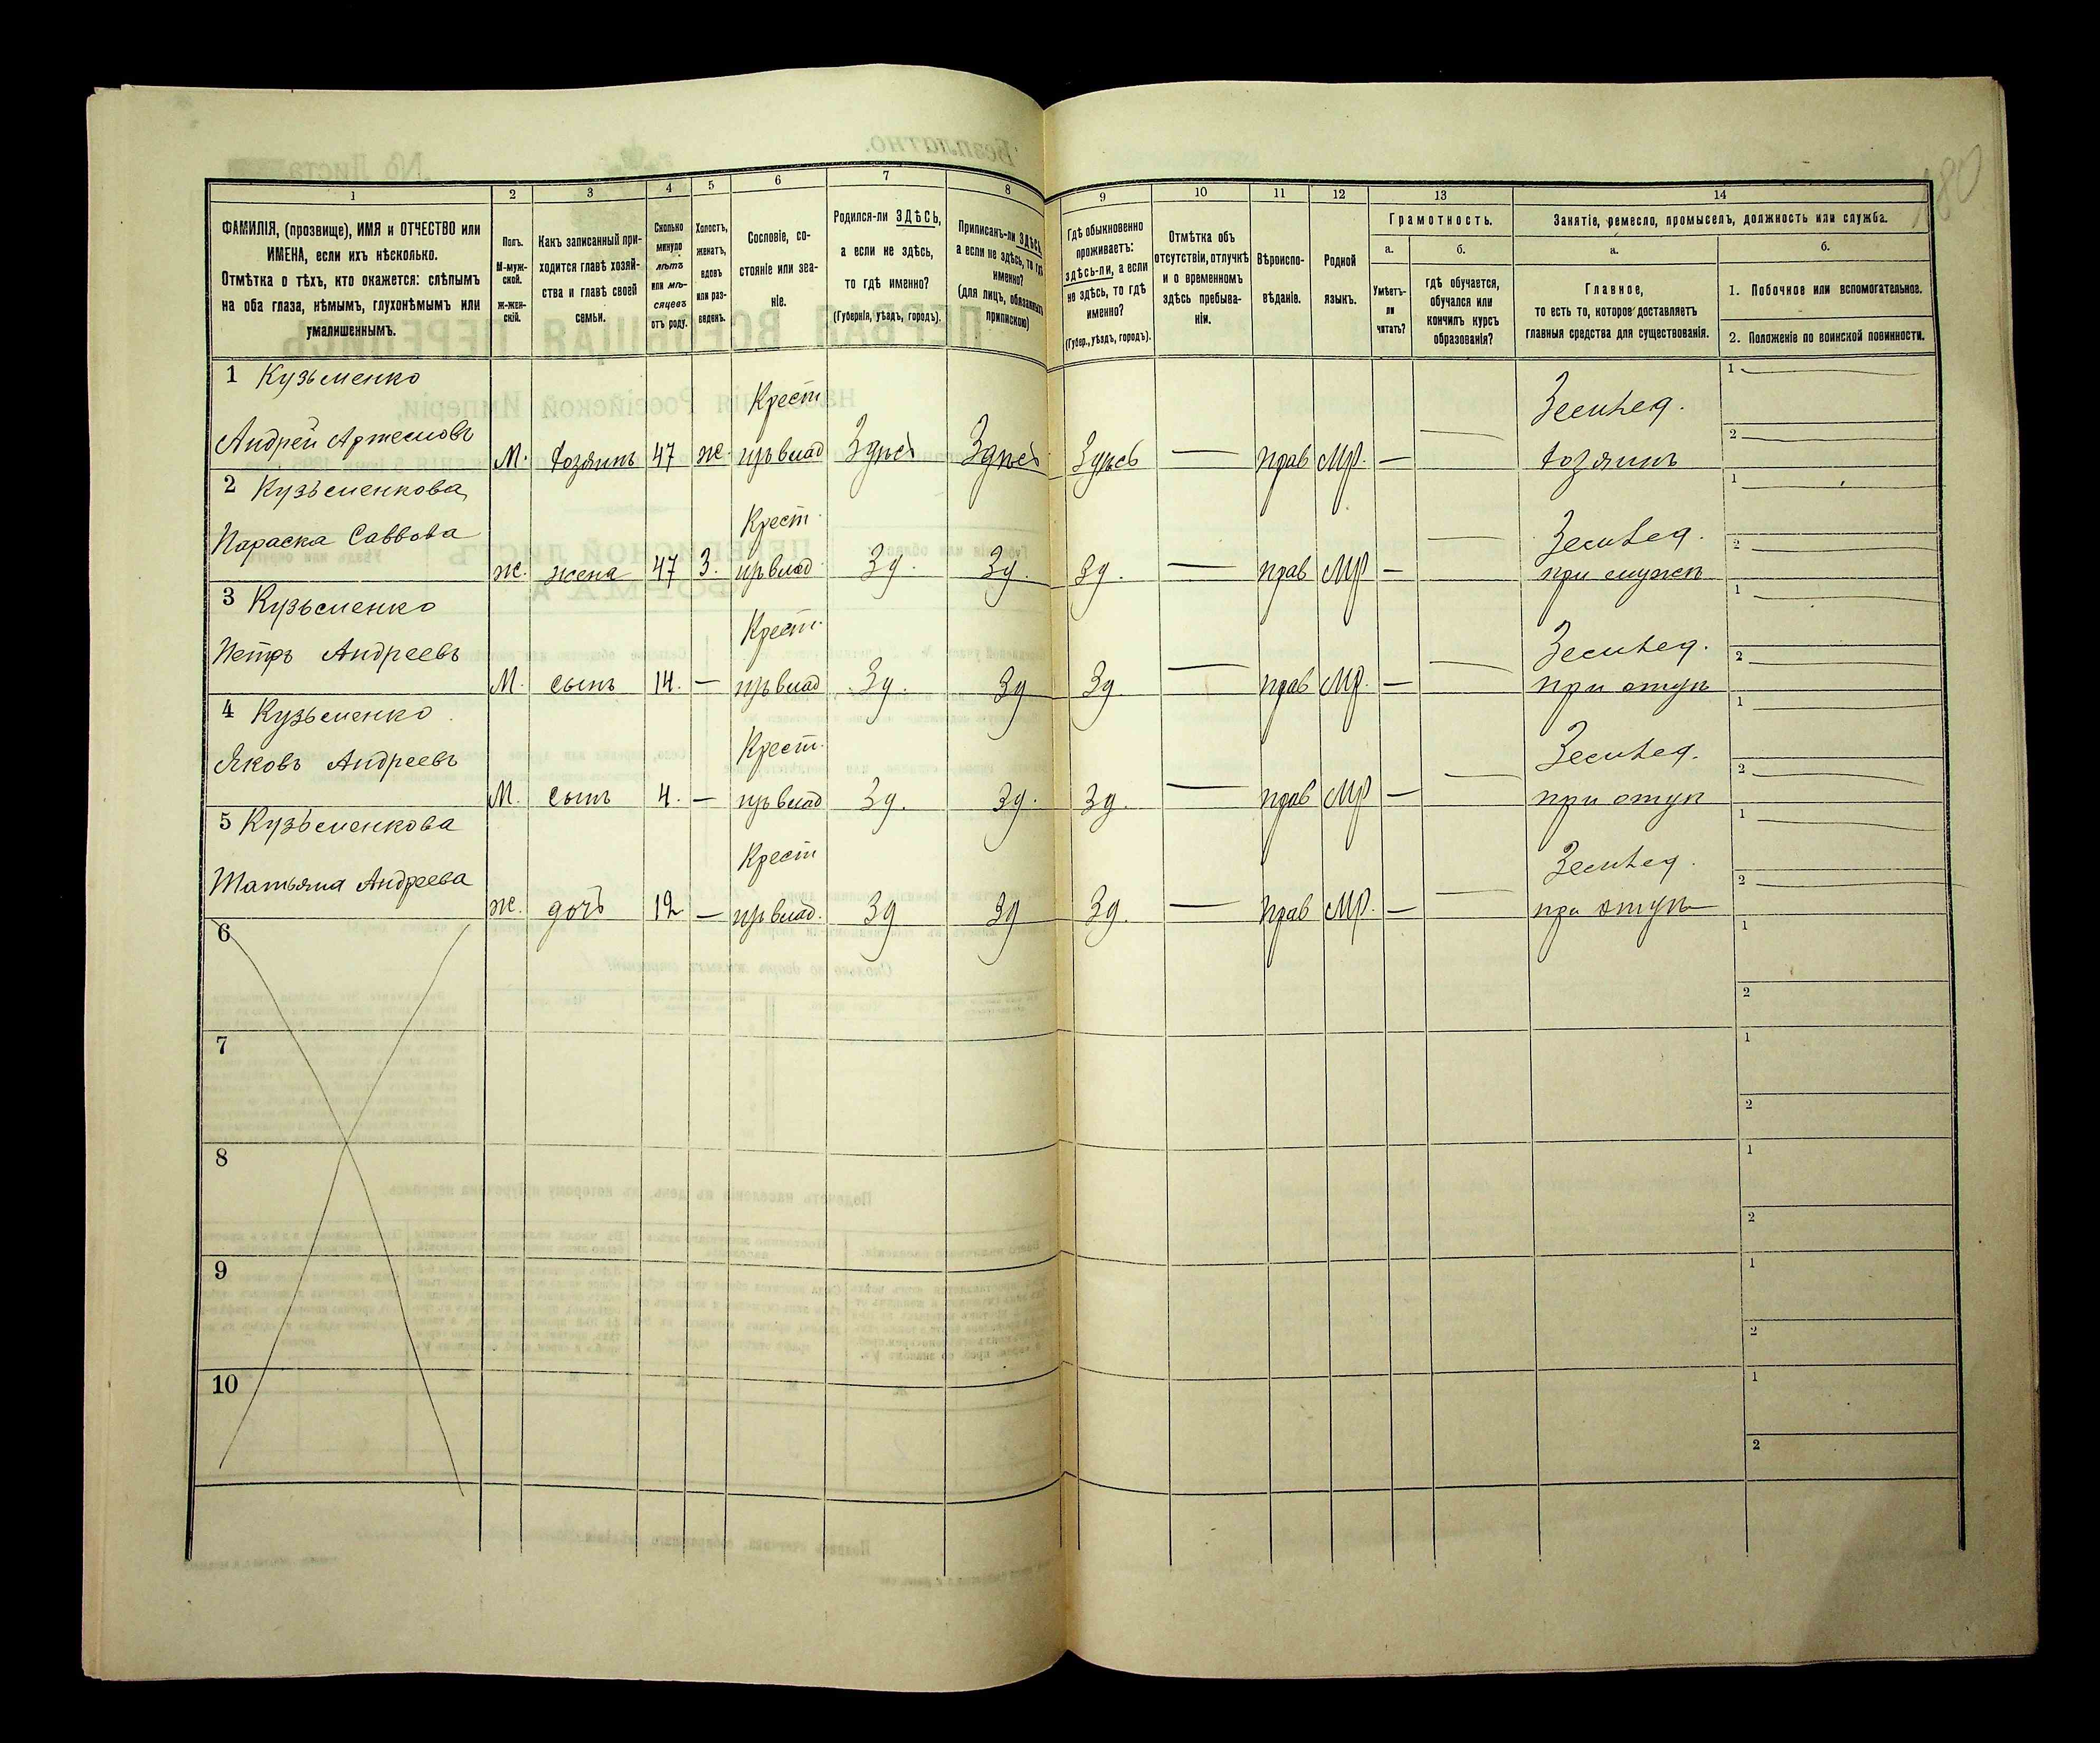 180
1 2 3 4 5 6 7 8 9 10 11 12 13 14
ФАМИЛІЯ, (прозвище), ИМЯ и ОТЧЕСТВО или
ИМЕНА, если ихъ нѣсколько.
Отмѣтка о тѣхъ, кто окажется: слѣпымъ
на оба глаза, нѣмымъ, глухонѣмымъ или
умалишеннымъ.
Полъ.
М-муж-
ской.
Ж-жен-
скій.
Какъ записанный при-
ходится главѣ хозяй-
ства и главѣ своей
семьи.
Сколько
минуло
лѣтъ
или мѣ-
сяцевъ
отъ роду.
Холостъ,
женатъ,
вдовъ
или раз-
веденъ.
Сословіе, со-
стояніе или зва-
ніе.
Родился-ли ЗДѢСЬ,
а если не здѣсь,
то гдѣ именно?
(Губернія, уѣздъ, городъ).
Приписанъ-ли ЗДѢСЬ,
а если не здѣсь, то гдѣ
именно?
(для лицъ, обязанныхъ
припискою)
Гдѣ обыкновенно
проживаетъ:
здѣсь-ли, а если
не здѣсь, то гдѣ
именно?
(Губер., уѣздъ, городъ).
Отмѣтка объ
отсутствіи, отлучкѣ
и о временномъ
здѣсь пребыва-
ніи.
Вѣроиспо-
вѣданіе.
Родной
языкъ.
Грамотность.
а.
Умѣетъ-
ли
читать?
б.
гдѣ обучается,
обучался или
кончилъ курсъ
образованія?
Занятіе, ремесло, промыселъ, должность или служба.
а.
Главное,
то есть то, которое доставляетъ
главныя средства для существованія.
б.
1. Побочное или вспомогательное.
2. Положеніе по воинской повинности.
1 Кузьменко Крест Земмед. 1 —
Андрей Артемовъ М. Хозяинъ 47 ж. пр влад Здѣсь Здѣсь Здѣсь — прав МР. — — хозяинъ 2 —
2 Кузьменкова Крест Земмед. 1 —
Параска Саввова ж. жена 47 З. пр влад Зд. Зд. Зд. — прав МР — — при мужѣ 2 —
3 Кузьменко Крест. Земмед. 1 —
Петръ Андреевъ М. сынъ 14. — пр влад Зд. Зд Зд. — прав МР. — — при отцѣ 2 —
4 Кузьменко Крест. Земмед. 1 —
Яковъ Андреевъ М. сынъ 4. — пр влад Зд. Зд. Зд. — прав МР — — при отцѣ 2 —
5 Кузьменкова Крест Земмед. 1 —
Татьяна Андреева ж. дочь 12 — пр влад. Зд Зд Зд. — прав МР. — — при отцѣ 2 —
6 1
2
7 1
2
8 1
2
9 1
2
10 1
2